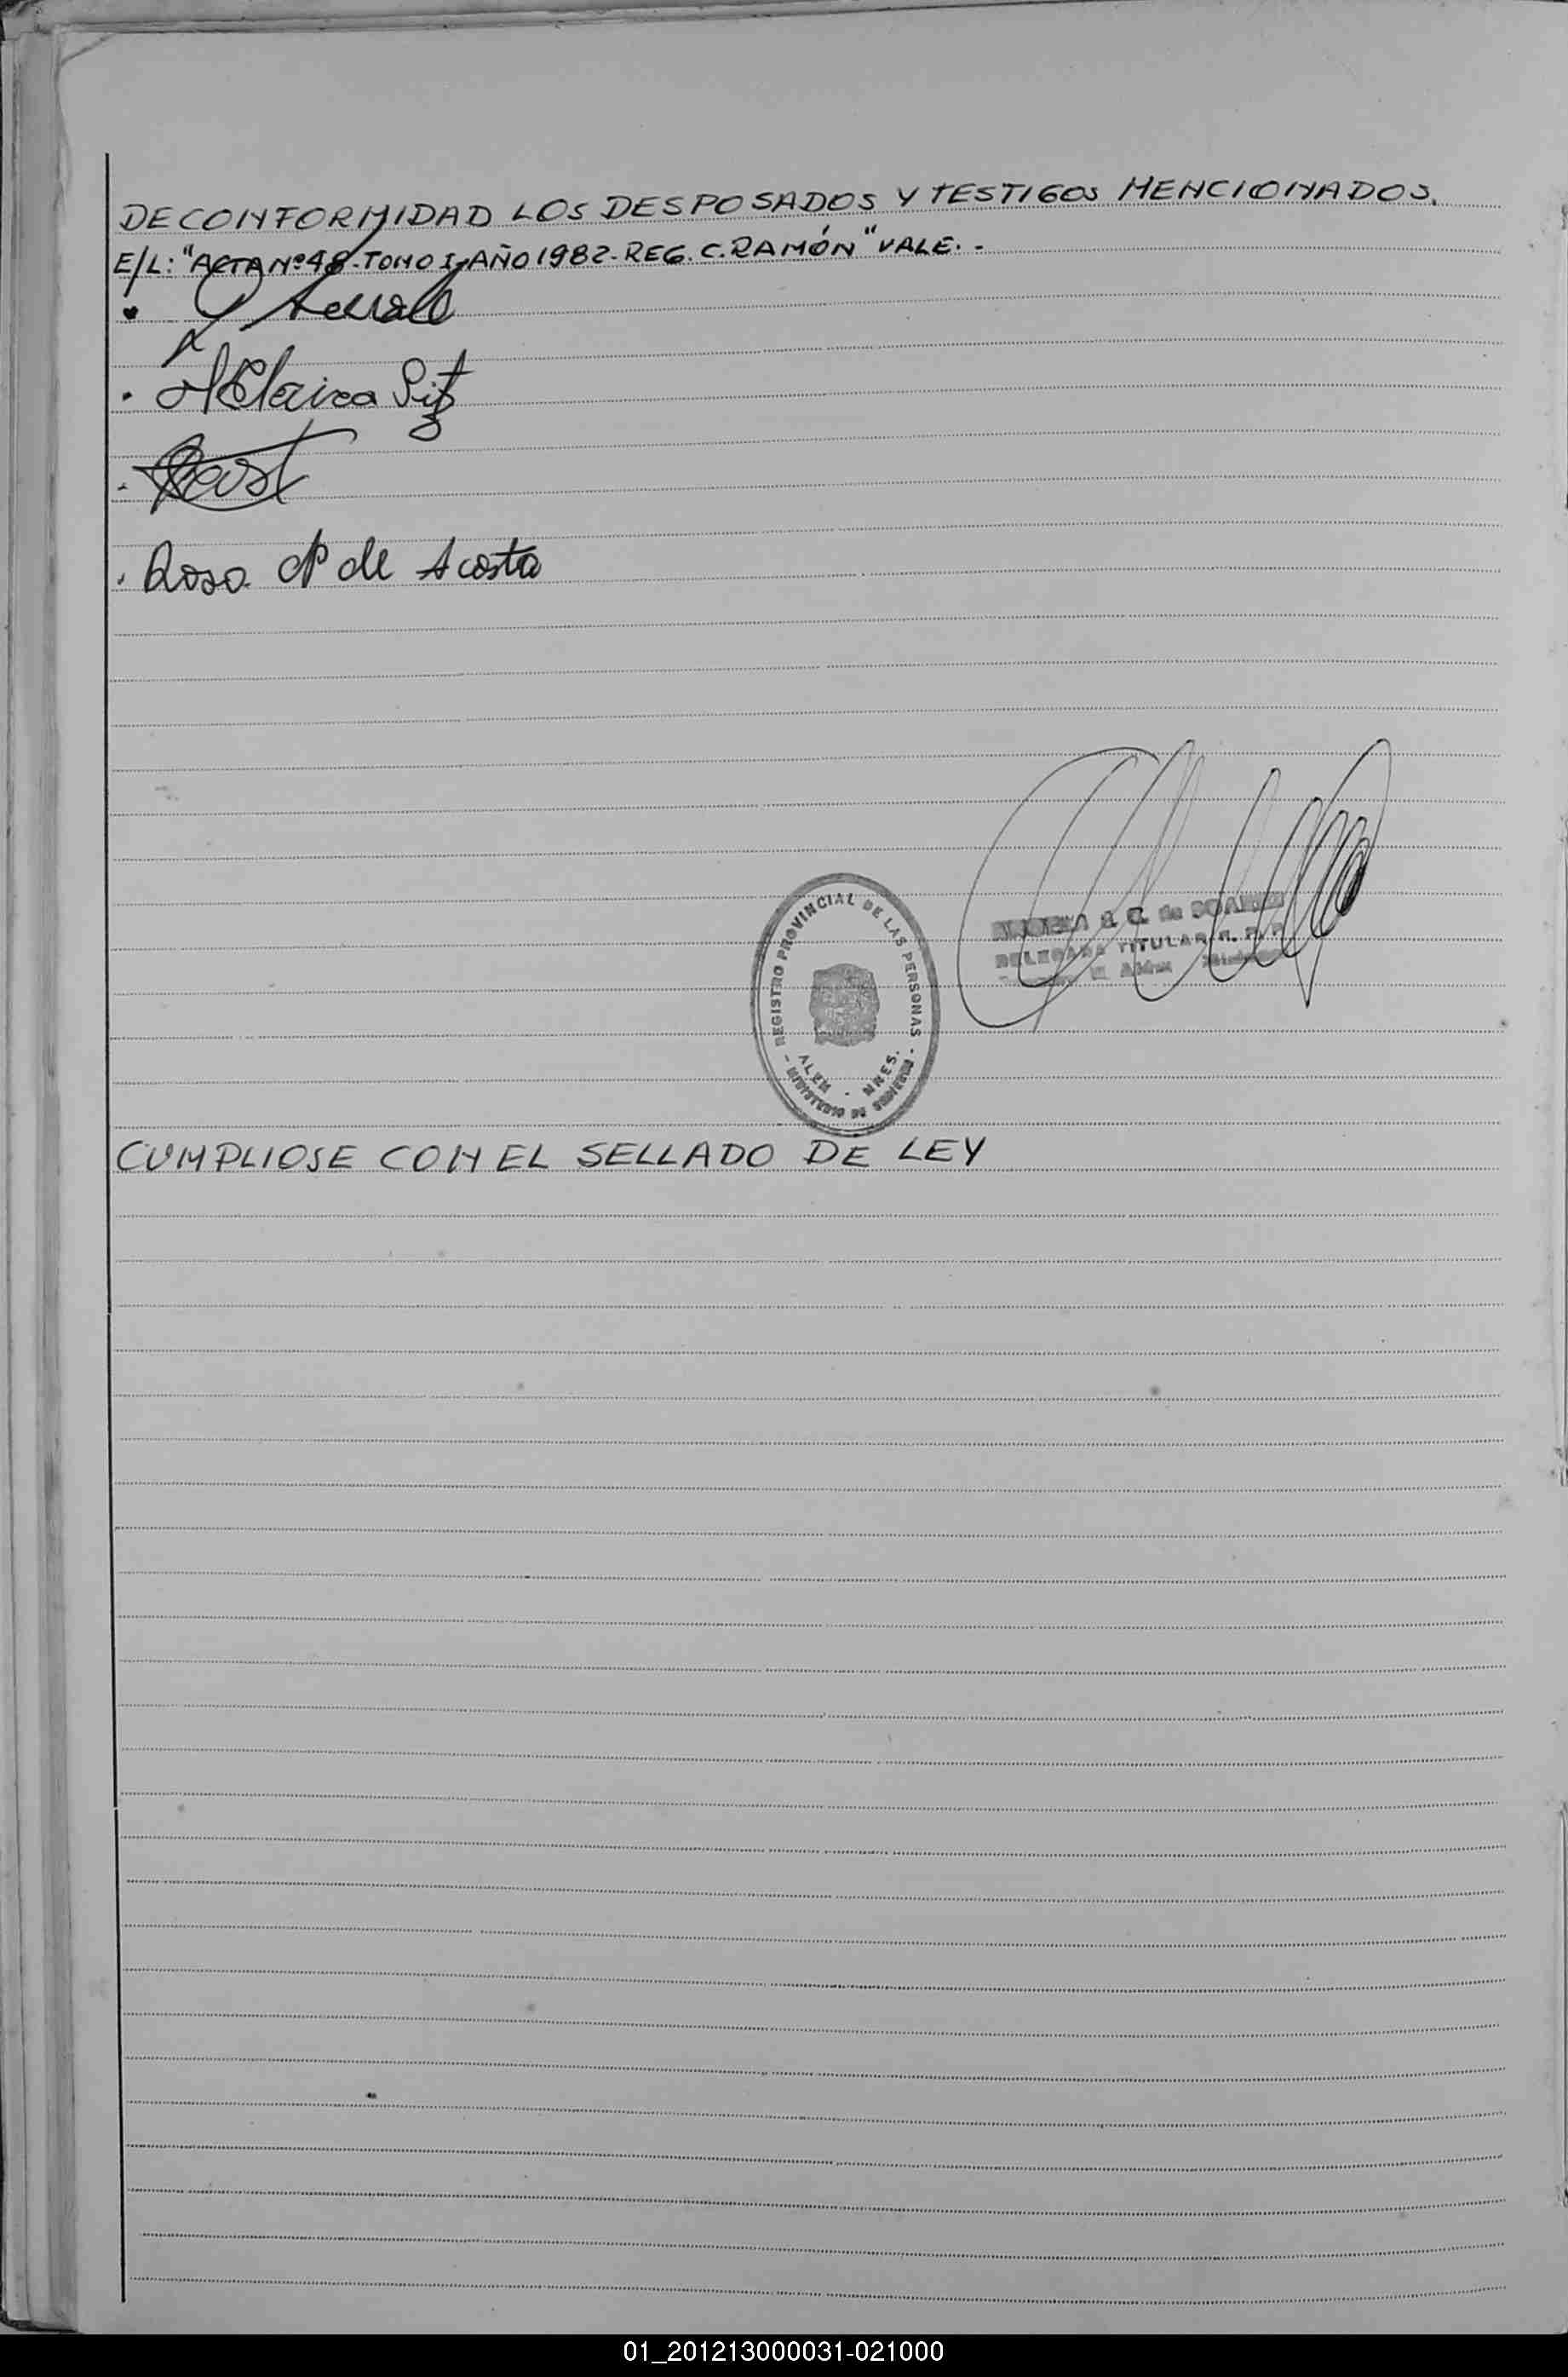 DE CONFORMIDAD LOS DESPOSADOS Y TESTIGOS MENCIONADOS.
E/L: "ACTA Nº 48-TOMO I-AÑO 1982-REG. C. RAMÓN" VALE.-
Rosa N de Acosta
REGISTRO PROVINCIAL DE LAS PERSONAS
ALEM - MNES.
MINISTERIO DE GOBIERNO
DELEGADA TITULAR R. P. P.
CUMPLIOSE CON EL SELLADO DE LEY
01_201213000031-021000